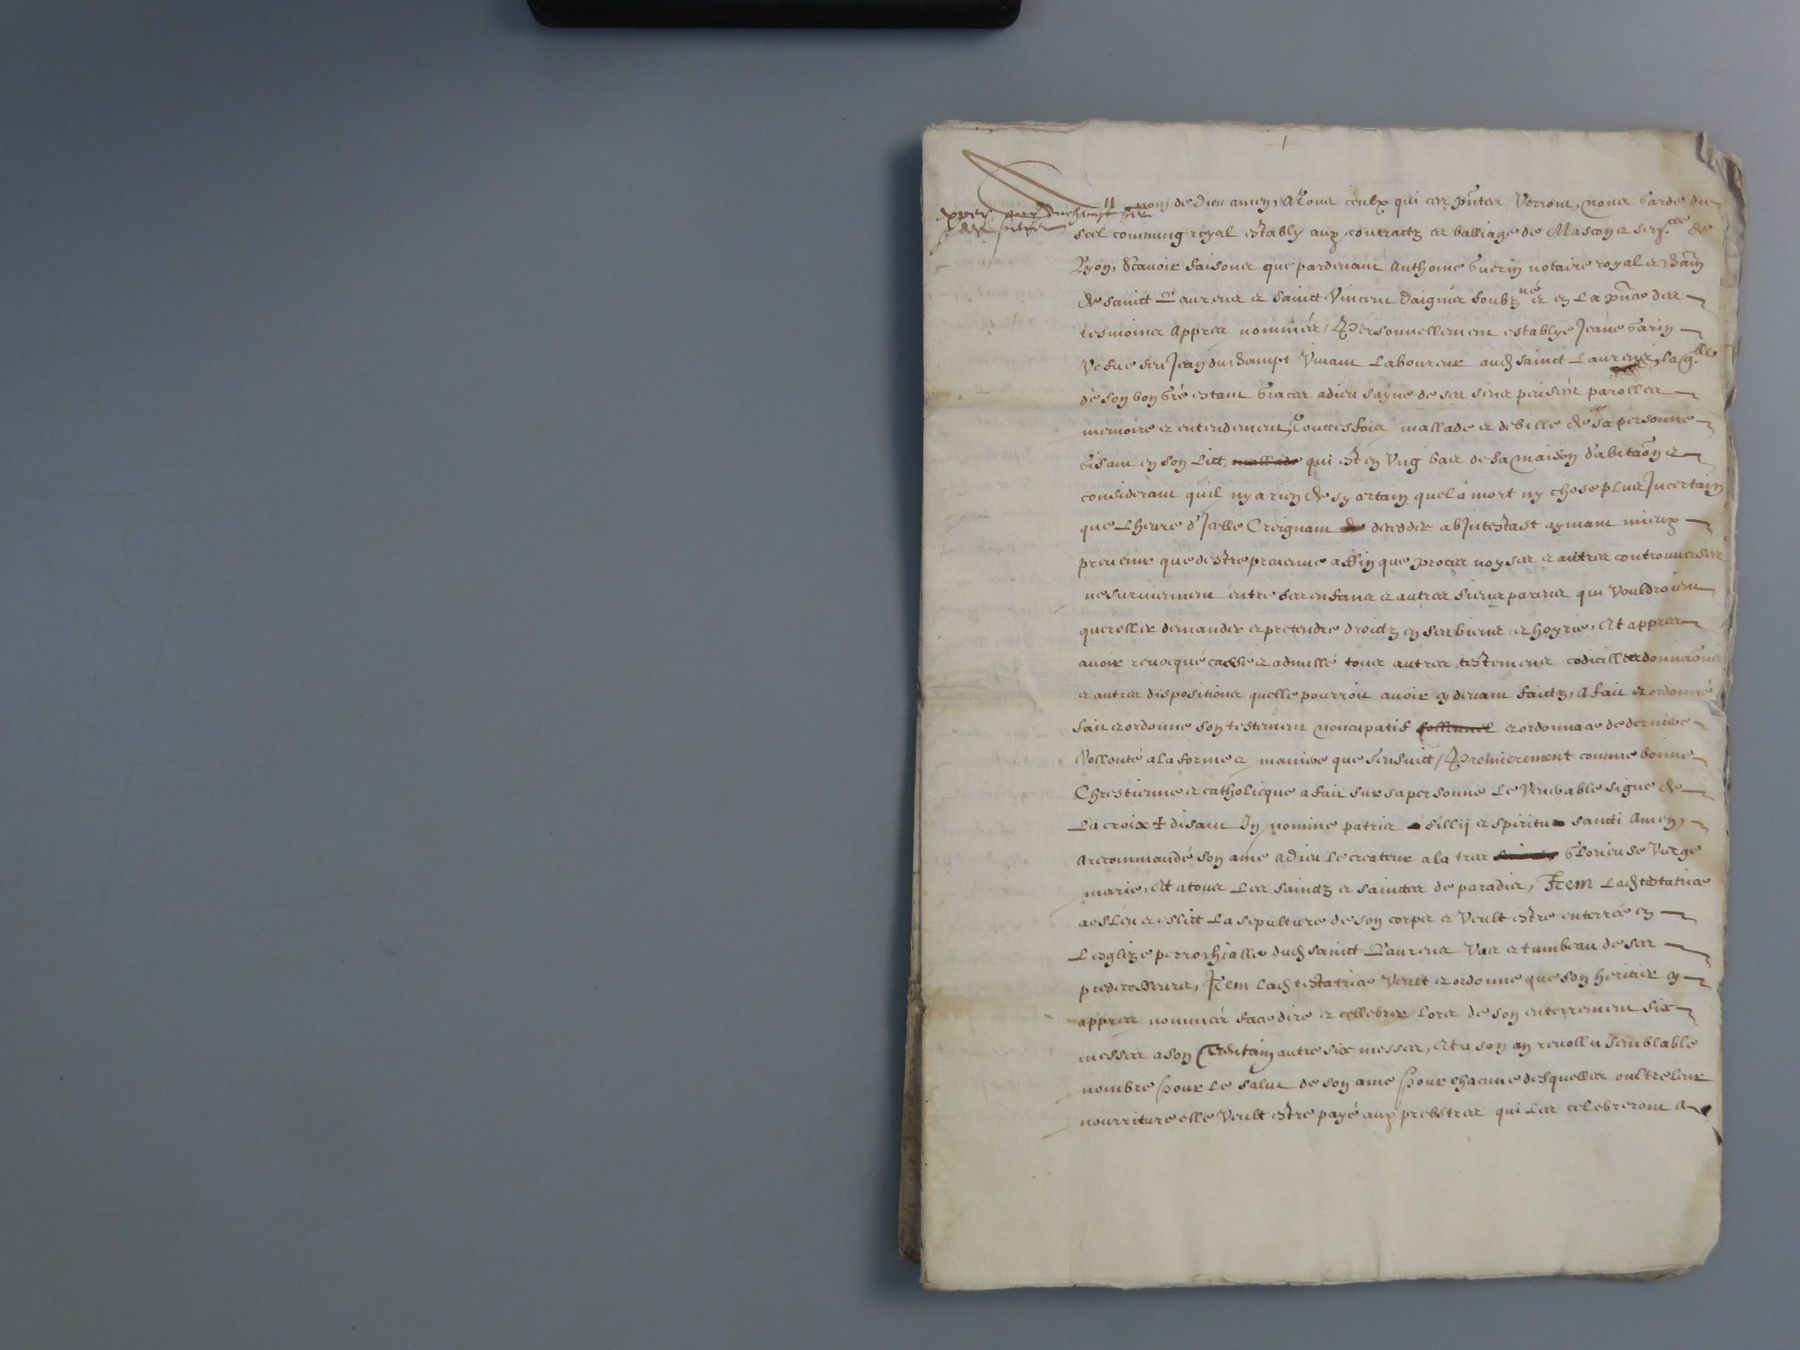 Au nom de Dieu amen, A tous ceulx qui ces pntes verront, nous Garde du
Scel commung royal estably aux contractz es balliage de Mascon et sen.cee de
Lyon, Scavoir faisons que pardevant Anthoine Guerin notaire royal
de sainct Laurens et sainct Vincent Daignis soubz.né et en la pnce des
tesmoings appres nommés, Personnellement establye Jeane Garin
Vefve feu Jean du Champt vivant laboureur aud sainct Laurens, laq.lle
de son bon gré estant graces a dieu sayne de ses sens pensées parolles
memoire et entendement, Touttesfois mallade et debille de sa personne
Gisant en son lict mallade qui est en ung bas de sa maison d'abitaon et
considerant quil ny a rien de sy certain que la mort ny chose plus Incertain
que Lheure d'Icelle Creignant de deceder abIntestast aymant mieux
prevenir que destre prevenue affin que proces noyses et autres controuverses
ne surviennent entre ses enfans et autres siens parens qui vouldroient
quereller demander et pretendre droictz en ses biens et hoyrie, Et appres
avoir revocqué cassé et adnullé tous autres testemens codicilles donnaons
et autres dispositions quelle pourroit avoir cy devant faictz, A fait et ordonné
fait et ordonne son testement noncupatif sollennel et ordonnace de derniere
Vollonté a la forme et maniere que sensuict, Premierement comme bonne
Chrestienne et catholicque a fait sur sa personne Le Venerable signe de
La croix + disant In nomine patris fillij et spiritus sancti Amen,
A recommandé son ame a Dieu le createur a la tres saincte Glorieuse Vierge
marie, Et a tous Les sainctz et sainctes de paradis, Item Lad testatrice
a esleu et eslict La sepulture de son corps et Veult estre enterrée en
Lesglize perrochialle dud sainct Laurens Vas et tumbeau de ses
predecesseurs, Item Lad testatrice Veult et ordonne que son heritier cy
appres nommér face dire et cellebrer Lors de son enterrement six
messes a son Trentain autre six messes, Et a son an revollu semblable
nombre pour Le salut de son ame pour chacune desquelles oultre leur
nourriture elle Veult estre payé aux prebstres qui Les celebreront a